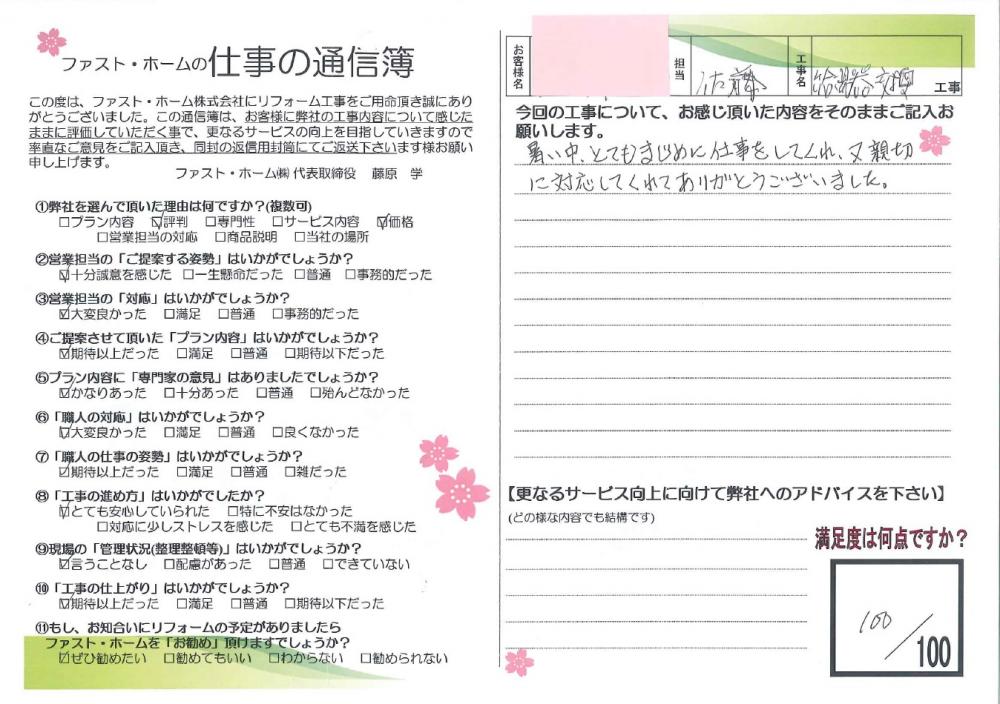 ファスト・ホームの仕事の通信簿
この度は、ファスト・ホーム株式会社にリフォーム工事をご用命頂き誠にあり
がとうございました。この通信簿は、お客様に弊社の工事内容について感じた
ままに評価していただく事で、更なるサービスの向上を目指していきますので
率直なご意見をご記入頂き、同封の返信用封筒にてご返送下さいます様お願い
申し上げます。
ファスト・ホーム㈱ 代表取締役 藤原 学
①弊社を選んで頂いた理由は何ですか?(複数可)
□プラン内容 ☑評判 □専門性 □サービス内容 ☑価格
□営業担当の対応 □商品説明 □当社の場所
②営業担当の「ご提案する姿勢」はいかがでしょうか?
☑十分誠意を感じた □一生懸命だった □普通 □事務的だった
③営業担当の「対応」はいかがでしょうか?
☑大変良かった □満足 □普通 □事務的だった
④ご提案させて頂いた「プラン内容」はいかがでしょうか?
☑期待以上だった □満足 □普通 □期待以下だった
⑤プラン内容に「専門家の意見」はありましたでしょうか?
☑かなりあった □十分あった □普通 □殆んどなかった
⑥「職人の対応」はいかがでしょうか?
☑大変良かった □満足 □普通 □良くなかった
⑦「職人の仕事の姿勢」はいかがでしょうか?
☑期待以上だった □満足 □普通 □雑だった
⑧「工事の進め方」はいかがでしたか?
☑とても安心していられた □特に不安はなかった
□対応に少しストレスを感じた □とても不満を感じた
⑨現場の「管理状況(整理整頓等)」はいかがでしょうか?
☑言うことなし □配慮があった □普通 □できていない
⑩「工事の仕上がり」はいかがでしょうか?
☑期待以上だった □満足 □普通 □期待以下だった
⑪もし、お知合いにリフォームの予定がありましたら
ファスト・ホームを「お勧め」頂けますでしょうか?
☑ぜひ勧めたい □勧めてもいい □わからない □勧められない
お客様名 担当 佐藤 工事名 給湯器交換 工事
今回の工事について、お感じ頂いた内容をそのままご記入お
願いします。
暑い中、とてもまじめに仕事をしてくれ、又親切
に対応してくれてありがとうございました。
【更なるサービス向上に向けて弊社へのアドバイスを下さい】
(どの様な内容でも結構です)
満足度は何点ですか?
100/100